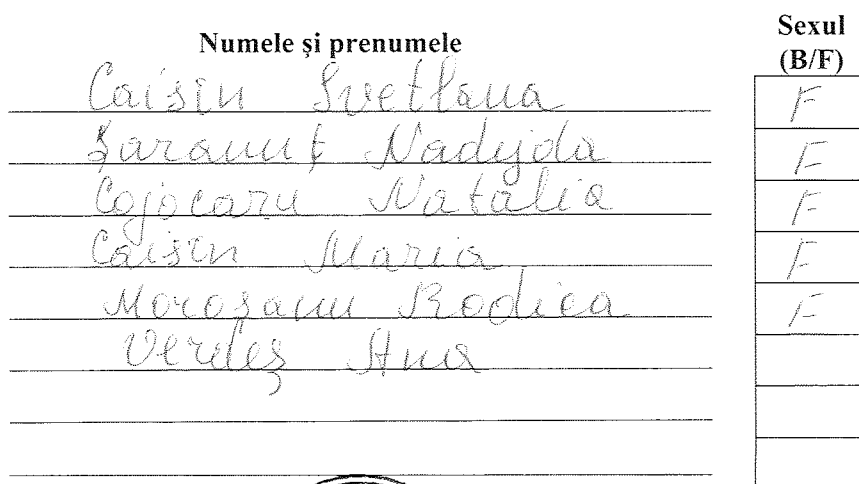 Numele şi prenumele Sexul (B/F)
Caisîn Svetlana F
Şaranuţ Nadejda F
Cojocaru Natalia F
Caisîn Maria F
Moroşanu Rodica F
Verdeş Ana